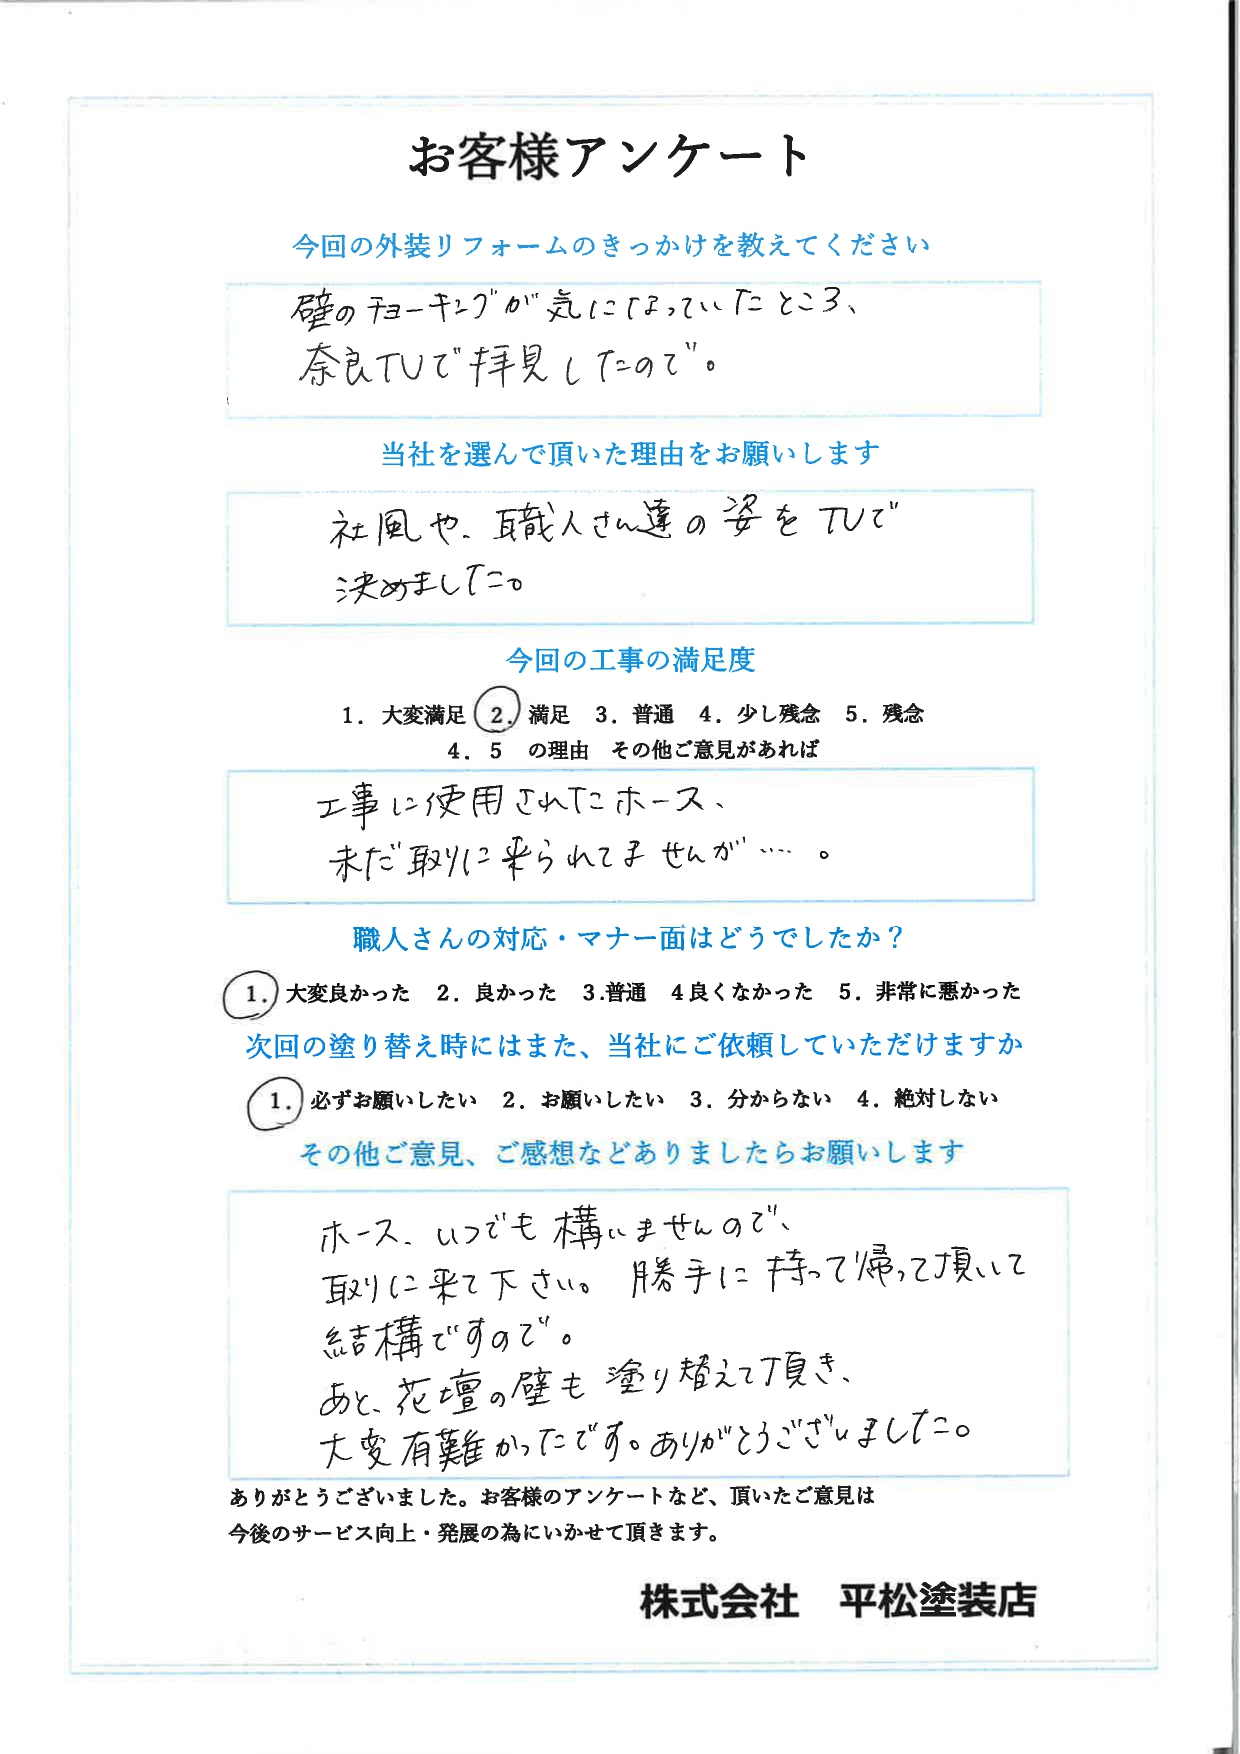 お客様アンケート
今回の外装リフォームのきっかけを教えてください
壁のチョーキングが気になっていたところ、
奈良TVで拝見したので。
当社を選んで頂いた理由をお願いします
社風や、職人さん達の姿をTVで
決めました。
今回の工事の満足度
1. 大変満足 2. 満足 3. 普通 4. 少し残念 5. 残念
4. 5 の理由 その他ご意見があれば
工事に使用されたホース、
未だ取りに来られてませんが……。
職人さんの対応・マナー面はどうでしたか？
1. 大変良かった 2. 良かった 3.普通 4良くなかった 5. 非常に悪かった
次回の塗り替え時にはまた、当社にご依頼していただけますか
1. 必ずお願いしたい 2. お願いしたい 3. 分からない 4. 絶対しない
その他ご意見、ご感想などありましたらお願いします
ホース、いつでも構いませんので、
取りに来て下さい。勝手に持って帰って頂いて
結構ですので。
あと、花壇の壁も塗り替えて頂き、
大変有難かったです。ありがとうございました。
ありがとうございました。お客様のアンケートなど、頂いたご意見は
今後のサービス向上・発展の為にいかせて頂きます。
株式会社 平松塗装店